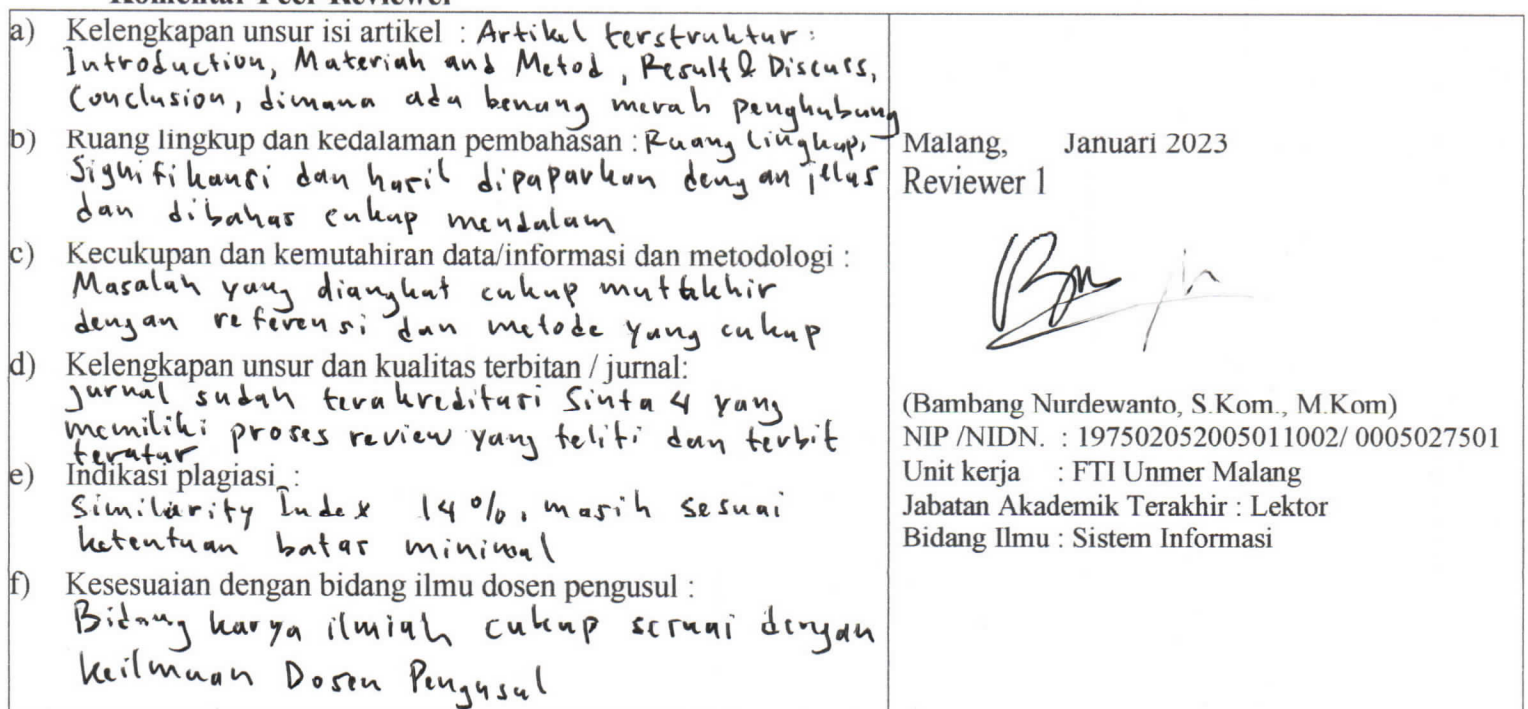 Komentar Peer Reviewer
a) Kelengkapan unsur isi artikel : Artikel terstruktur :
Introduction, Materiah and Metod, Result & Discuss,
Conclusion, dimana ada benang merah penghubung
b) Ruang lingkup dan kedalaman pembahasan : Ruang lingkup,
Signifikansi dan hasil dipaparkan dengan jelas
dan dibahas cukup mendalam
c) Kecukupan dan kemutahiran data/informasi dan metodologi :
Masalah yang diangkat cukup muttakhir
dengan referensi dan metode yang cukup
d) Kelengkapan unsur dan kualitas terbitan / jurnal:
Jurnal sudah terakreditasi Sinta 4 yang
memiliki proses review yang teliti dan terbit
teratur
e) Indikasi plagiasi :
Similarity Index 14%, masih sesuai
ketentuan batas minimal
f) Kesesuaian dengan bidang ilmu dosen pengusul :
Bidang karya ilmiah cukup sesuai dengan
keilmuan Dosen Pengusul
Malang, Januari 2023
Reviewer 1
(Bambang Nurdewanto, S.Kom., M.Kom)
NIP /NIDN. : 197502052005011002/ 0005027501
Unit kerja : FTI Unmer Malang
Jabatan Akademik Terakhir : Lektor
Bidang Ilmu : Sistem Informasi